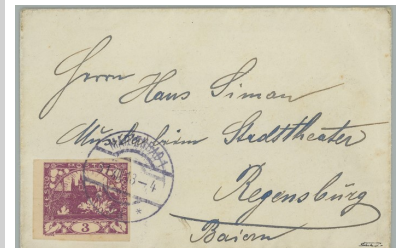 Herrn Hans Simon
beim Stadttheater
Regensburg
Baiern
3